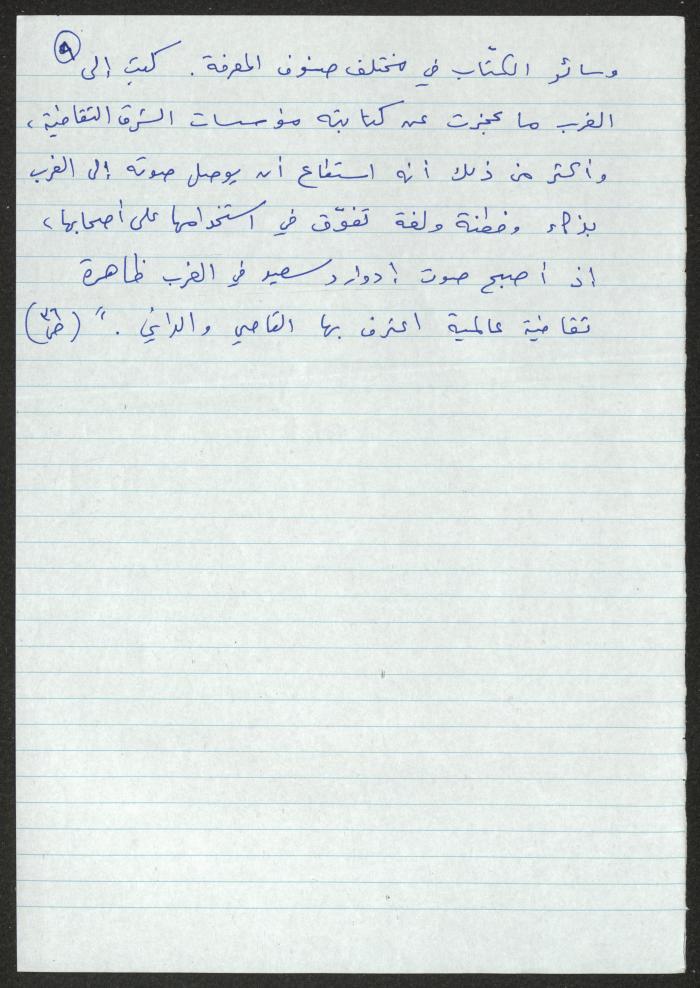 ٩
وسائر الكتّاب في مختلف صنوف المعرفة. كتب إلى
الغرب ما عجزت عن كتابته مؤسسات الشرق الثقافية،
وأكثر من ذلك أنه استطاع أن يوصل صوته إلى الغرب
بذكاء وفطنة ولغة تفوّق في استخدامها على أصحابها،
اذ اصبح صوت إدوارد سعيد في الغرب ظاهرة
ثقافية عالمية اعترف بها القاصي والداني." (ص٣٦)